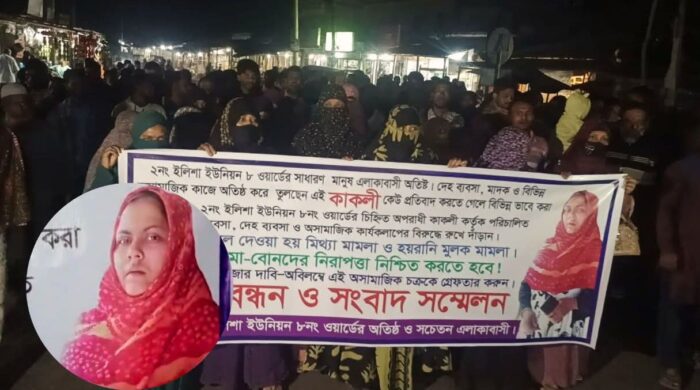 ২নং ইলিশা ইউনিয়ন ৮ ওয়ার্ডের সাধারণ মানুষ এলাকাবাসী অতিষ্ট। দেহ ব্যবসা, মাদক ও বিভিন্ন
সামাজিক কাজে অতিষ্ঠ করে তুলছেন এই কাকলী কেউ প্রতিবাদ করতে গেলে বিভিন্ন ভাবে করা
২নং ইলিশা ইউনিয়ন ৮নং ওয়ার্ডের চিহ্নিত অপরাধী কাকলী কর্তৃক পরিচালিত
ব্যবসা, দেহ ব্যবসা ও অসামাজিক কার্যকলাপের বিরুদ্ধে রুখে দাঁড়ান।
দেওয়া হয় মিথ্যা মামলা ও হয়রানি মুলক মামলা।
মা-বোনদের নিরাপত্তা নিশ্চিত করতে হবে!
দাবি-অবিলম্বে এই অসামাজিক চক্রকে গ্রেফতার করুন।
বন্ধন ও সংবাদ সম্মেলন
ইলিশা ইউনিয়ন ৮নং ওয়ার্ডের অতিষ্ঠ ও সচেতন এলাকাবাসী।
করা